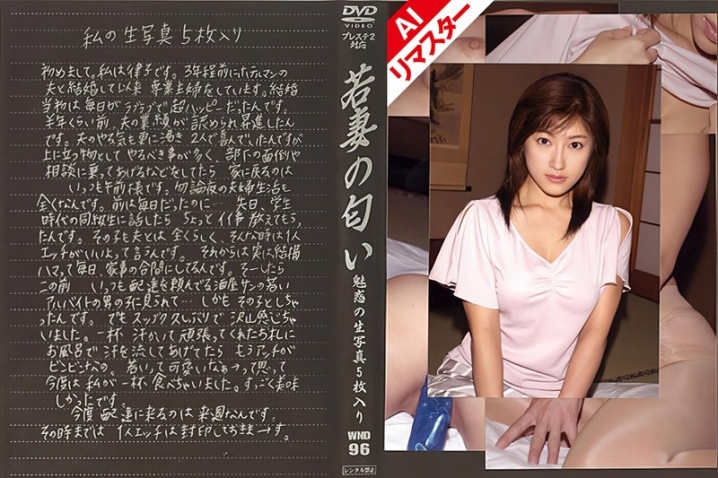 私の生写真5枚入り
初めまして。私は律子です。3年程前にホテルマンの
夫と結婚して以来 専業主婦をしています。結婚
当初は毎日がラブラブで超ハッピーだったんです。
半年くらい前、夫の業績が認められ昇進したん
です。夫のやる気も更に湧き2人で喜んでいたんですが
上に立つ物としてやるべき事が多く、部下の面倒や
相談に乗ってあげるなどをしてたら 家に戻るのは
いつも午前様です。勿論夜の夫婦生活も
全くなんです。前は毎日だったのに… 先日、学生
時代の同級生に話したら ちょっとイイ事教えてもらっ
たんです。その子も夫とは全くらしく、そんな時は1人
エッチがいいよって言うんです。それからは実に結構
ハマって毎日、家事の合間にしてるんです。そーしたら
この前 いつも配達を頼んでる酒屋サンの若い
アルバイトの男の子に見られて… しかもその子としちゃ
ったんです。でもスッゴク久しぶりで沢山感じちゃ
いました。一杯 汗かいて頑張ってくれたお礼に
お風呂で汗を流してあげてたら もうアッチが
ビンビンなの。若いって可愛いなぁって思って
今度は私が一杯食べちゃいました。すっごく美味
しかったです。
今度配達に来るのは来週なんです。
その時までは 1人エッチは封印しておきまーす。
DVD
VIDEO
プレステ2
対応
若妻の匂い
魅惑の生写真5枚入り
WND
96
レンタル禁止
AI
リマスター